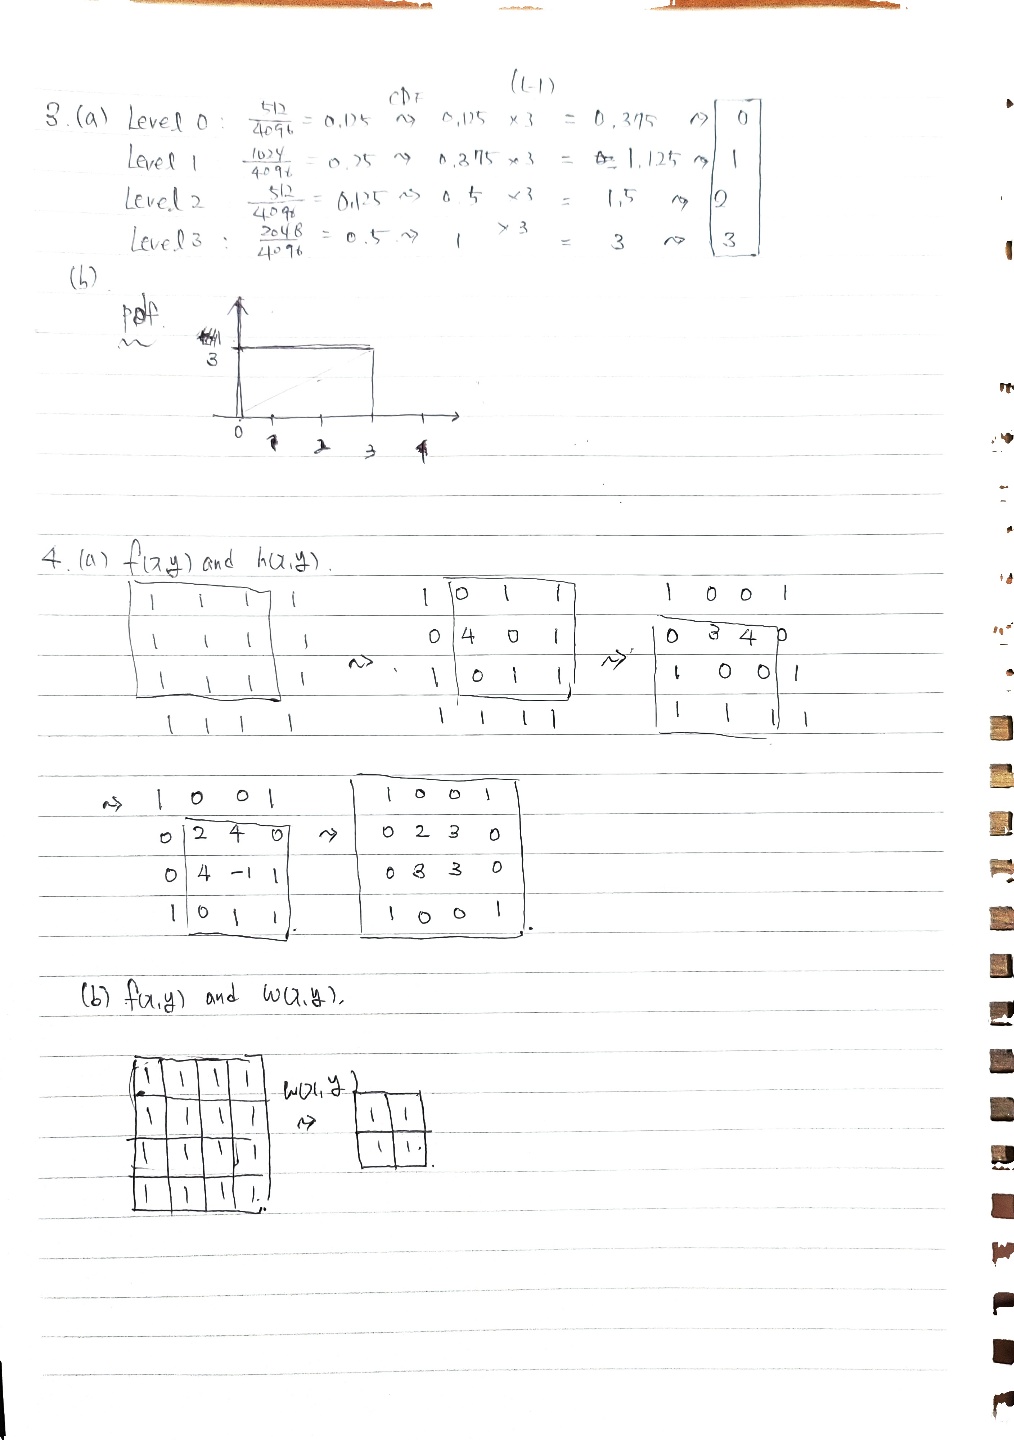 (L-1)
CDF
3. (a) Level 0 : 512/4096 = 0.125 ⇝ 0.125 × 3 = 0.375 ⇝ 0
Level 1 1024/4096 = 0.25 ⇝ 0.375 × 3 = 1.125 ⇝ 1
Level 2 512/4096 = 0.125 ⇝ 0.5 × 3 = 1.5 ⇝
Level 3 : 2048/4096 = 0.5 ⇝ 1 × 3 = 3 ⇝ 3
(b)
pdf
3
0 1 2 3 4
4. (a) f(x,y) and h(x,y).
1 1 1 1 1 0 1 1 1 0 0 1
1 1 1 1 ⇝ 0 4 0 1 ⇝ 0 3 4 0
1 1 1 1 1 0 1 1 1 0 0 1
1 1 1 1 1 1 1 1 1 1 1 1
⇝ 1 0 0 1 1 0 0 1
0 2 4 0 ⇝ 0 2 3 0
0 4 -1 1 0 3 3 0
1 0 1 1 1 0 0 1
(b) f(x,y) and w(x,y).
1 1 1 1 w(x,y)
1 1 1 1 ⇝ 1 1
1 1 1 1 1 1
1 1 1 1